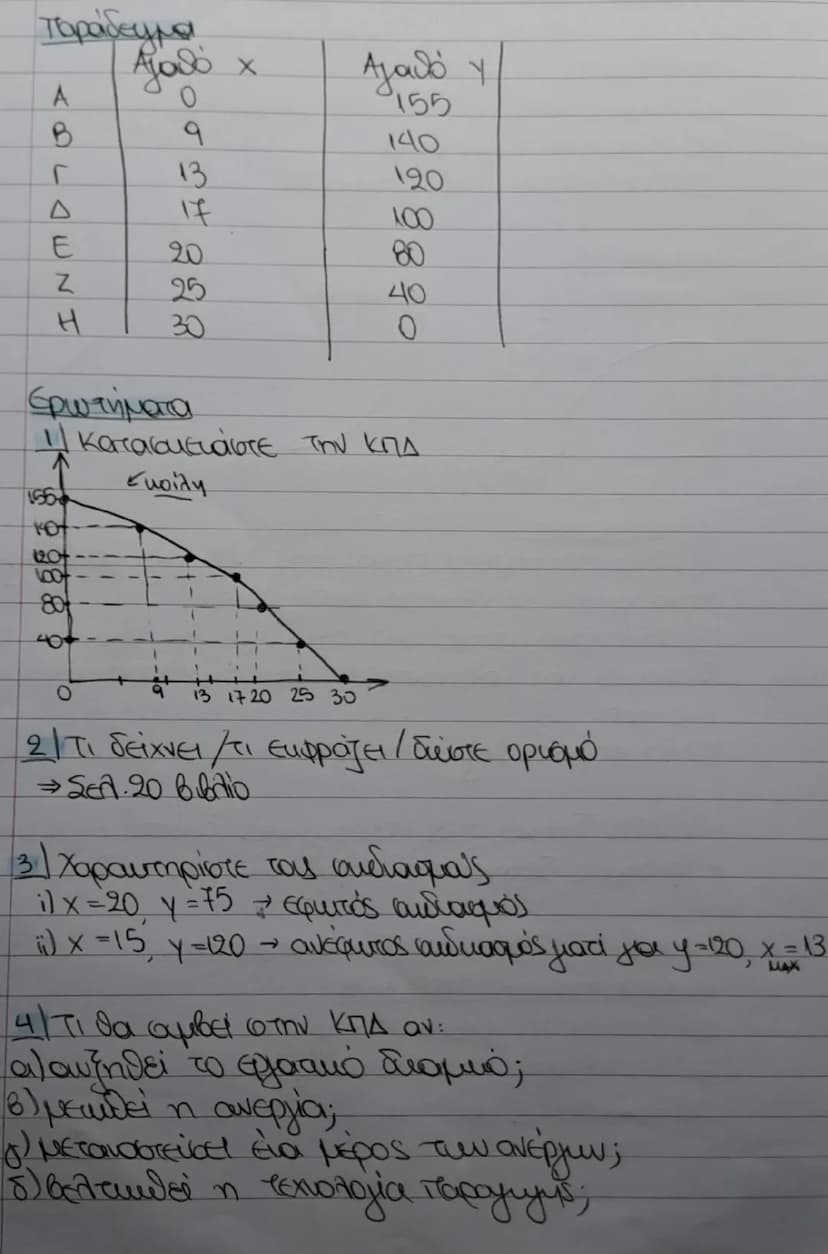 Παράδειγμα
Αγαθό x Αγαθό Y
Α 0 155
Β 9 140
Γ 13 120
Δ 17 100
Ε 20 80
Ζ 25 40
Η 30 0
Ερωτήματα
1) Κατασκευάστε την ΚΠΔ
κοίλη
155
140
120
100
80
40
0 9 13 17 20 25 30
2) Τι δείχνει / τι εκφράζει / δώστε ορισμό
⇒ Σελ. 20 βιβλίο
3) Χαρακτηρίστε τους συνδιασμούς
i) x = 20, Y = 75 → εφικτός συνδιασμός
ii) x = 15, Y = 120 → ανέφικτος συνδιασμός γιατί για y = 120, x = 13
MAX
4) Τι θα συμβεί στην ΚΠΔ αν:
α) αυξηθεί το εργατικό δυναμικό;
β) μειωθεί η ανεργία;
γ) μεταναστεύσει ένα μέρος των ανέργων;
δ) βελτιωθεί η τεχνολογία παραγωγής;